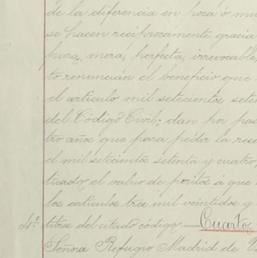 de la diferencia en poca ó mu
se hacen recíprocamente gracia
pura, mera, perfecta, irrevocable
to renuncian el beneficio que
el artículo mil setecientos sete
del Código Civil; dan por pas
tro años que para pedir la resc
el mil setecientos setenta y cuatro
ticado el valor de peritos a que
los artículos tres mil veintidos y
4ª titres del citado código. Cuarta
Señora Refugio Madrid de